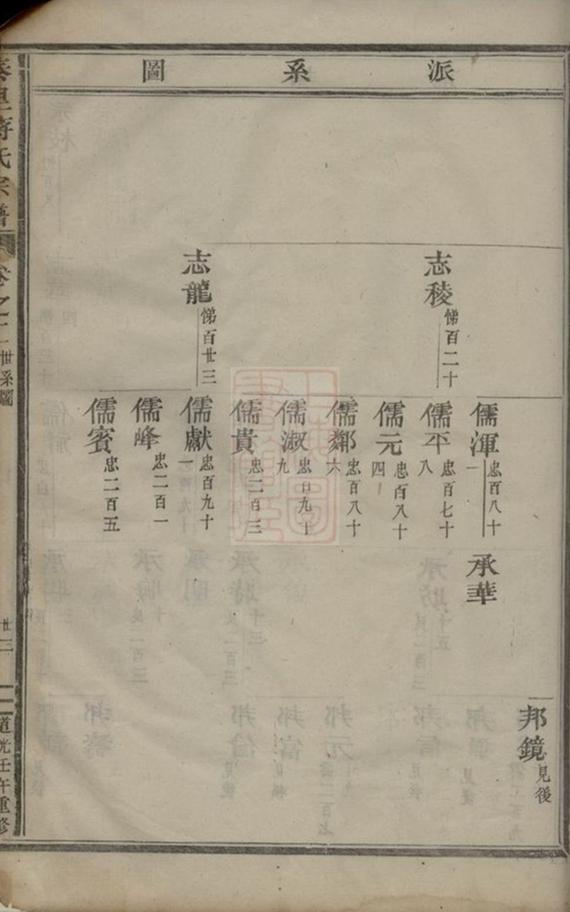 派系圖
邦鏡 見後
志稜 悌百二十
儒渾 忠百八十一
承華
儒平 忠百七十八
儒元 忠百八十四
儒鄰 忠百八十六
儒淑 忠百九十九
儒貴 忠二百三
志龍 悌百廿三
儒獻 忠百九十
儒峰 忠二百一
儒賓 忠二百五
蔣氏宗譜
卷之二 世系圖
道光壬午重修